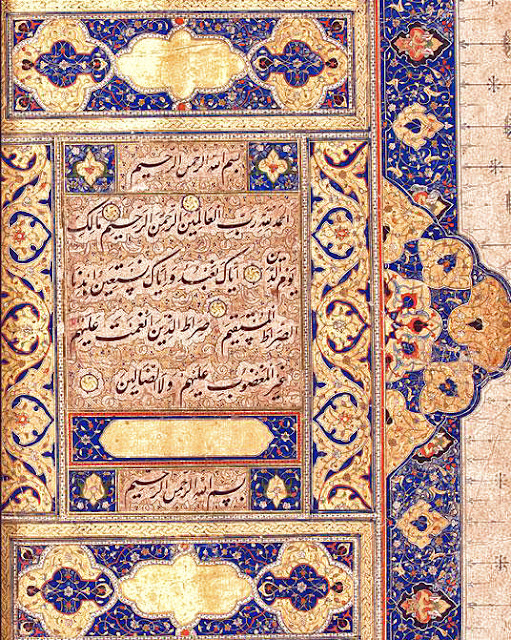 بسم الله الرحمن الرحیم
الحمد لله رب العالمین الرحمن الرحیم مالک
یوم الدین ایاک نعبد و ایاک نستعین اهدنا
الصراط المستقیم صراط الذین انعمت علیهم
غیر المغضوب علیهم ولا الضالین
بسم الله الرحمن الرحیم